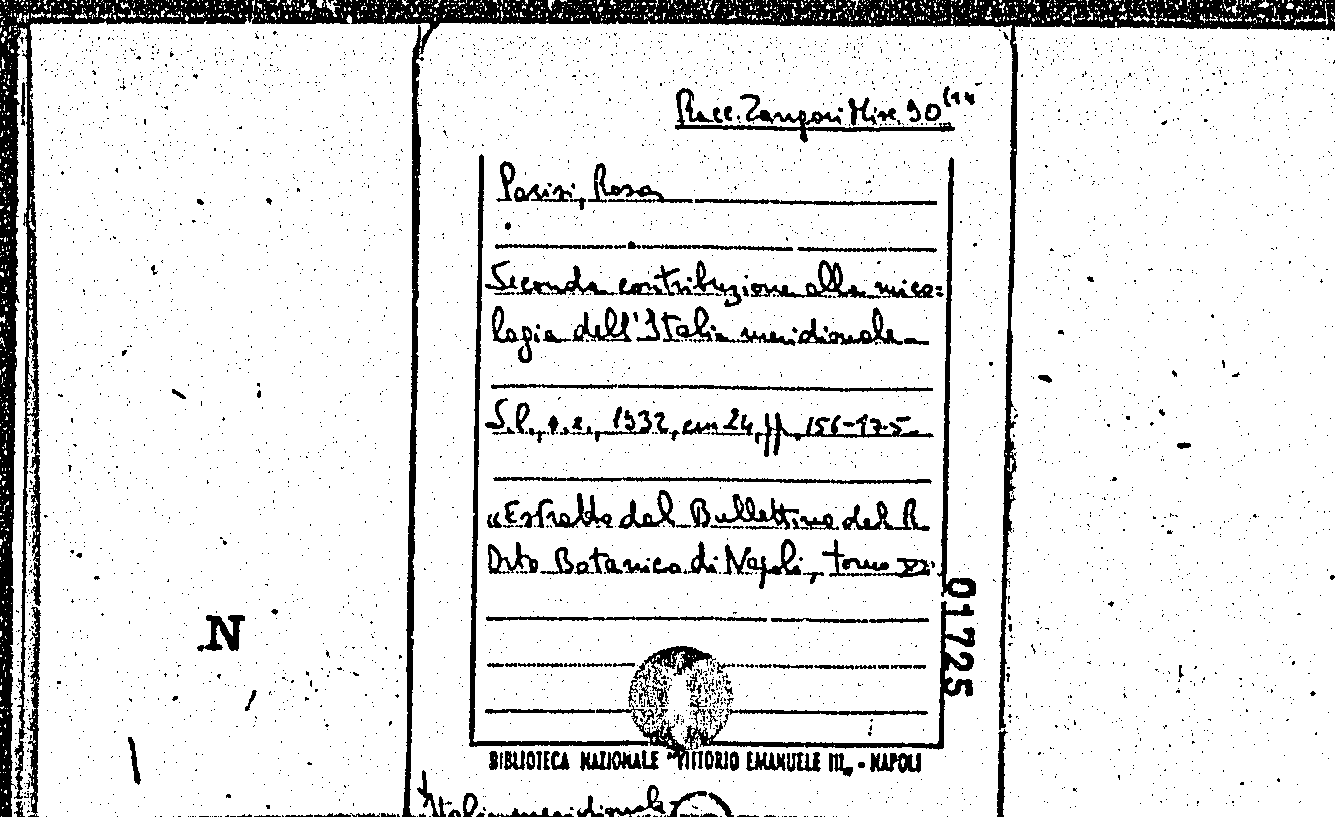 Racc. Zangari Misc. 90 (14
Parisi, Rosa
Seconda contribuzione alla mico=
logia dell'Italia meridionale
S.l., s.e., 1932, cm 24, pp. 156-175
«Estratto dal Bullettino del R.
Orto Botanico di Napoli, tomo XI.
01725
N
BIBLIOTECA NAZIONALE "VITTORIO EMANUELE III„ - NAPOLI
Italia meridionale